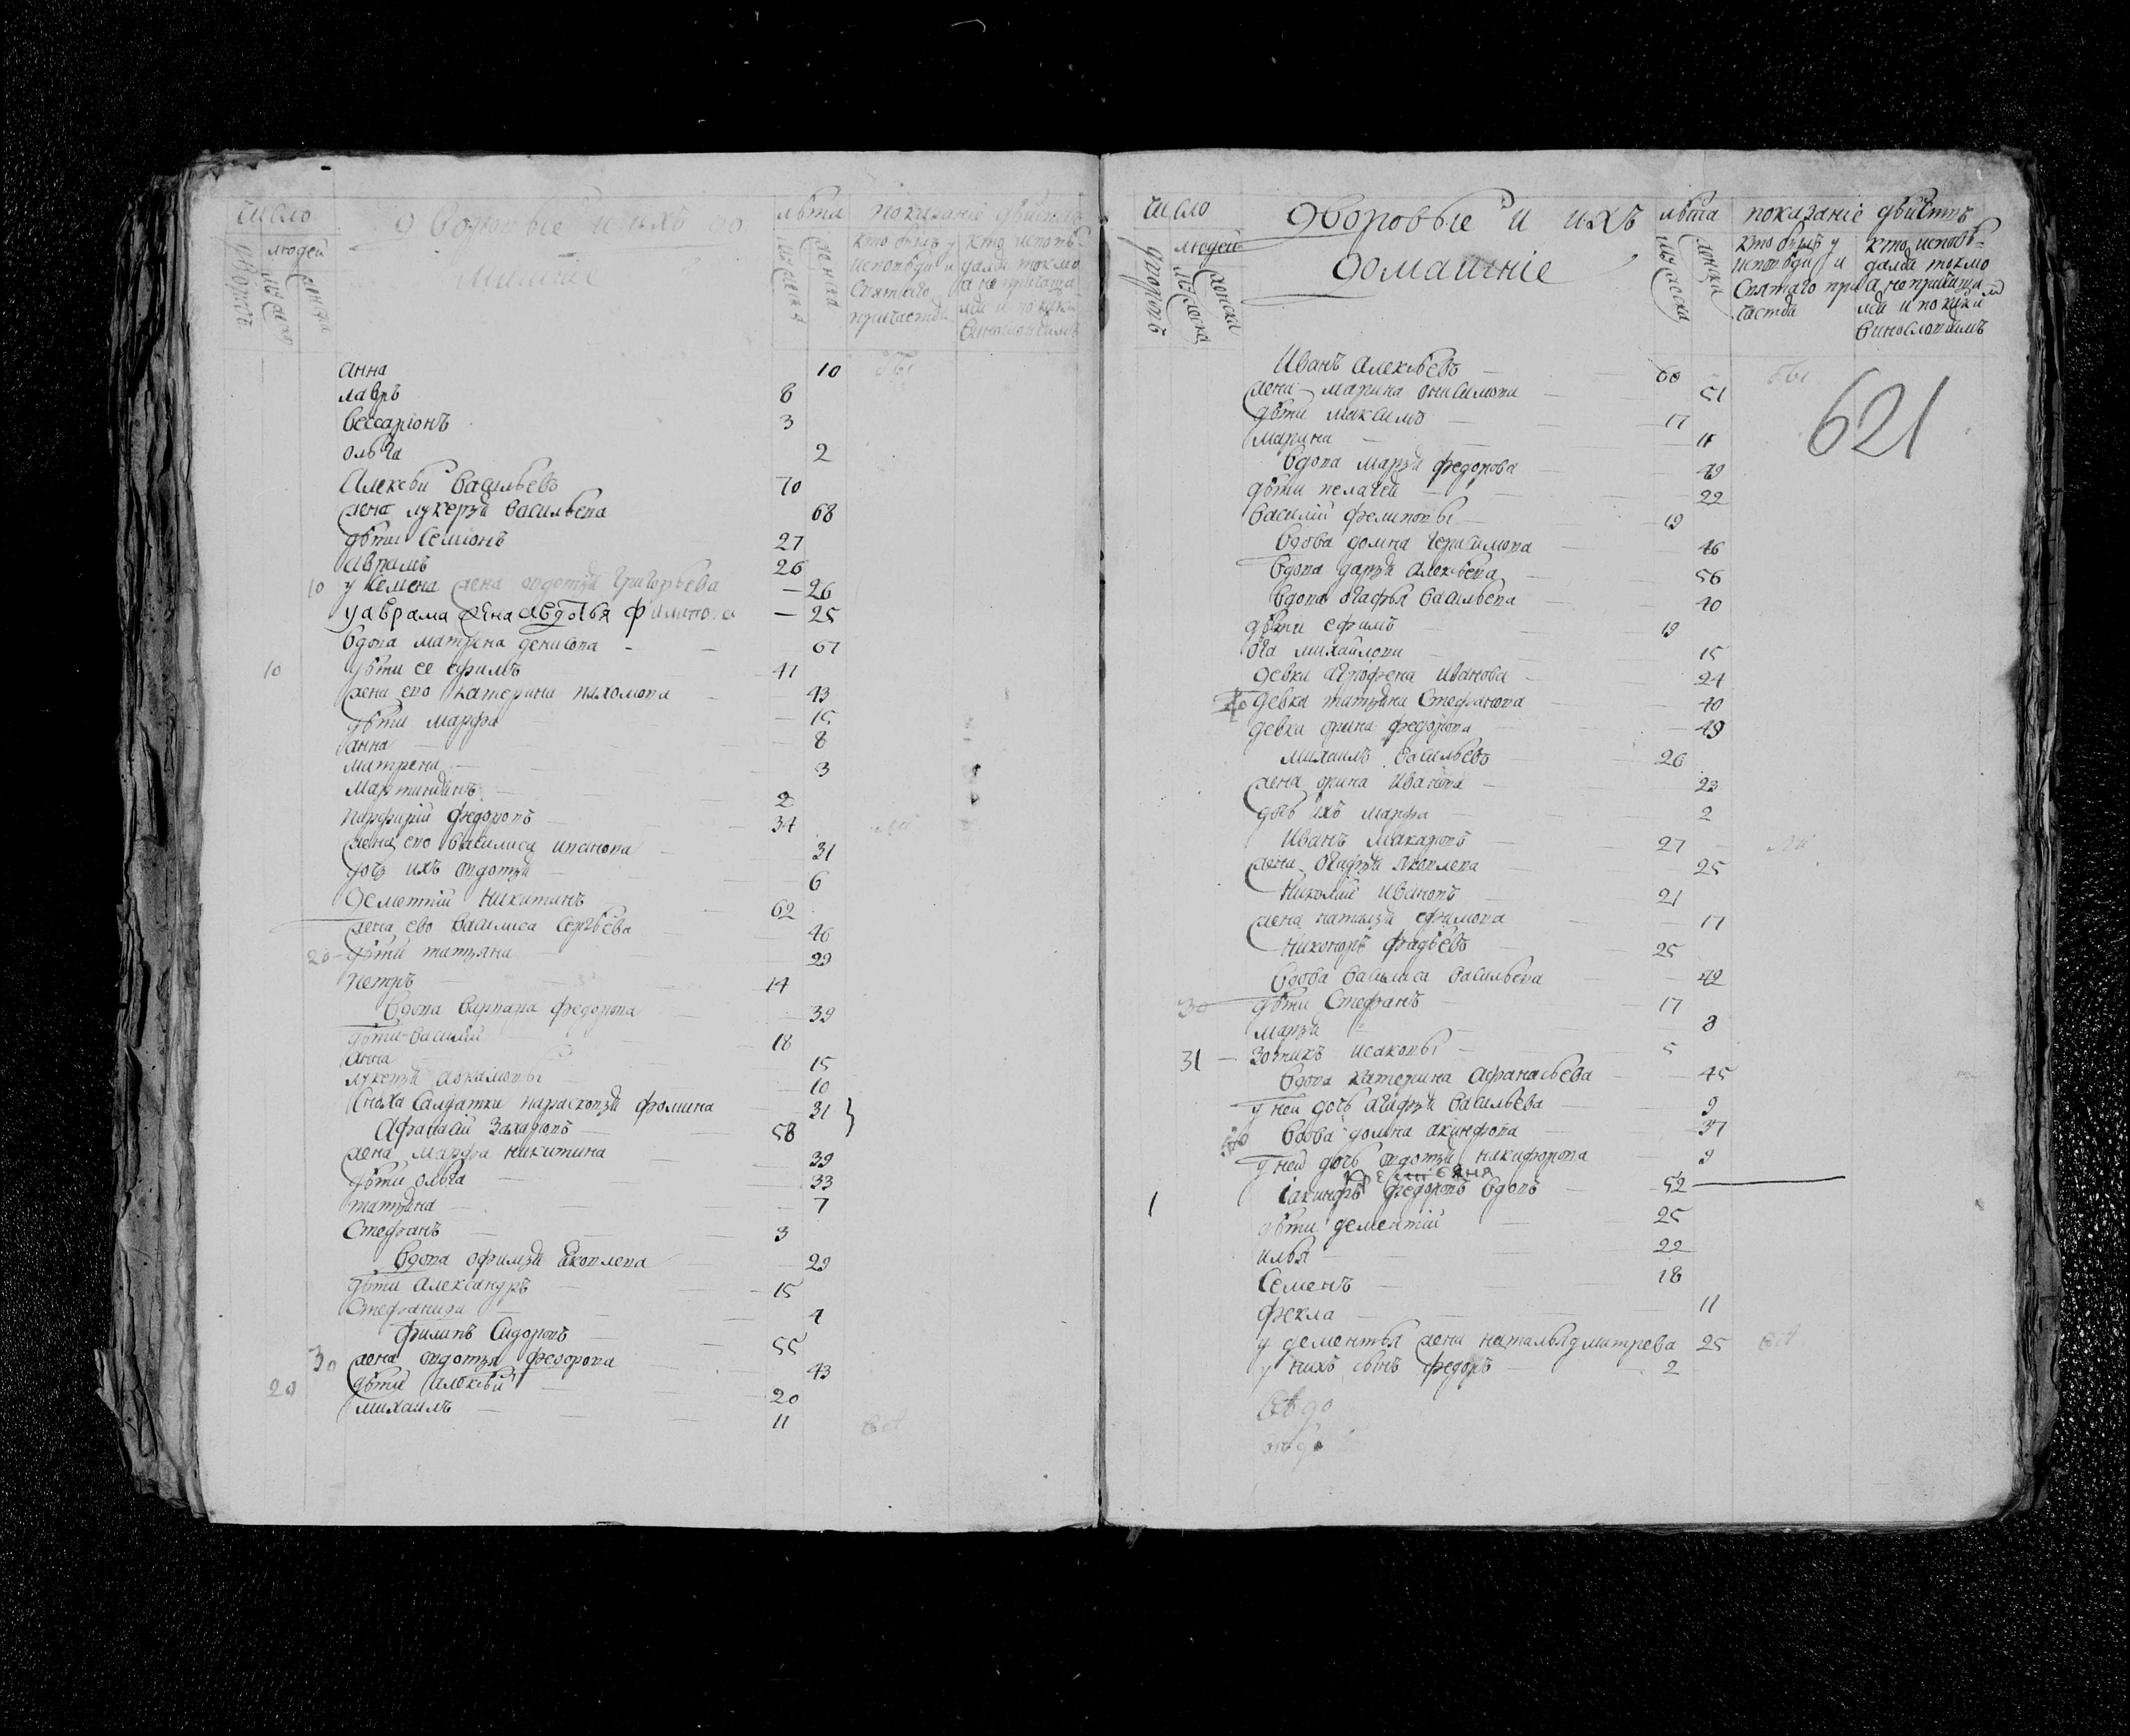 число
дворовые и ихъ до
машніе
лѣта
показаніе дѣйств
людей
дворовъ
мужеска
женска
мужеска
женска
кто былъ у
исповѣди и
святаго
причастія
кто исповѣ-
дался токмо
а не причаща
лся и по какимъ
винословіямъ
анна 10 бы
лавръ 8
вессаріонъ 3
ольга 2
Алексѣй Васильевъ 70
жена лукерья васильева 68
дѣти Семіонъ 27
Аврамъ 26
10 у Семена жена овдотья григорьева — 26
у аврама жена авдотья филипова — 25
вдова матрена денисова - - 67
10 дѣти ее ефимъ — 41
жена ево катерина пахомова — 43
дѣти марфа — 15
анна — 8
матрена — 3
мартиніанъ — 2
парфирій федоровъ — 34 ли
жена ево василиса иванова — 31
дочь ихъ овдотья — 6
дементій никитинъ — 62
жена ево василиса Сергѣева — 46
20 - дѣти татьяна — 29
петръ — 14
вдова варвара федорова — 39
дѣти василій — 18
анна — 15
лукерья — 10
сноха салдатка парасковья фомина 31
Афанасій Захаровъ — 58
жена марфа никитина — 39
дѣти ольга — 33
татьяна — 7
Стефанъ — 3
вдова офимья яковлева — 29
дѣти александръ — 15
Стефанида — 4
филипъ Сидоровъ — 55
30 жена овдотья федорова 43
20 дѣти алексѣй — 20
михаилъ — 11 всѣ
число
дворовые и ихъ
домашніе
лѣта
показаніе дѣйств
людей
дворовъ
мужеска
женска
мужеска
женска
кто былъ у
исповѣди и
святаго при
частія
кто исповѣ-
дался токмо
а не причаща
лся и по какимъ
винословіямъ
621
Иванъ Алексѣевъ — 60 бы
жена марина онисимова — 51
дѣти максимъ — 17
марина — 11
вдова марья федорова — 49
дѣти пелагея — 22
василій филиповы — 19
вдова домна герасимова — 46
вдова дарья алексѣева — 56
вдова огафья васильева — 40
дѣти ефимъ — 19
михайловы — 15
девка агрофена иванова — 24
девка татьяна Стефанова — 40
девка орина федорова — 49
михаилъ васильевъ — 26
жена орина иванова — 23
дочь ихъ марфа — 2
Иванъ макаровъ — 27 ли
жена огафья яковлева — 25
николай ивановъ — 21
жена наталья ефимова — 17
никоноръ фадѣевъ — 25
вдова василиса васильева — 42
30 дѣти Стефанъ — 17
марья — 8
31 — исаковы — 5
вдова катерина афанасьева — 45
у ней дочь агафья васильева — 9
вдова домна акинфова — 37
у ней дочь овдотья никифорова — 9
крестьяня
1 iакинфъ федоровъ вдовъ — 52
дѣти дементій — 25
илья — 22
Семенъ — 18
фекла — 11
у дементья жена наталья дмитрева 25 всѣ
у нихъ сынъ федоръ — 2